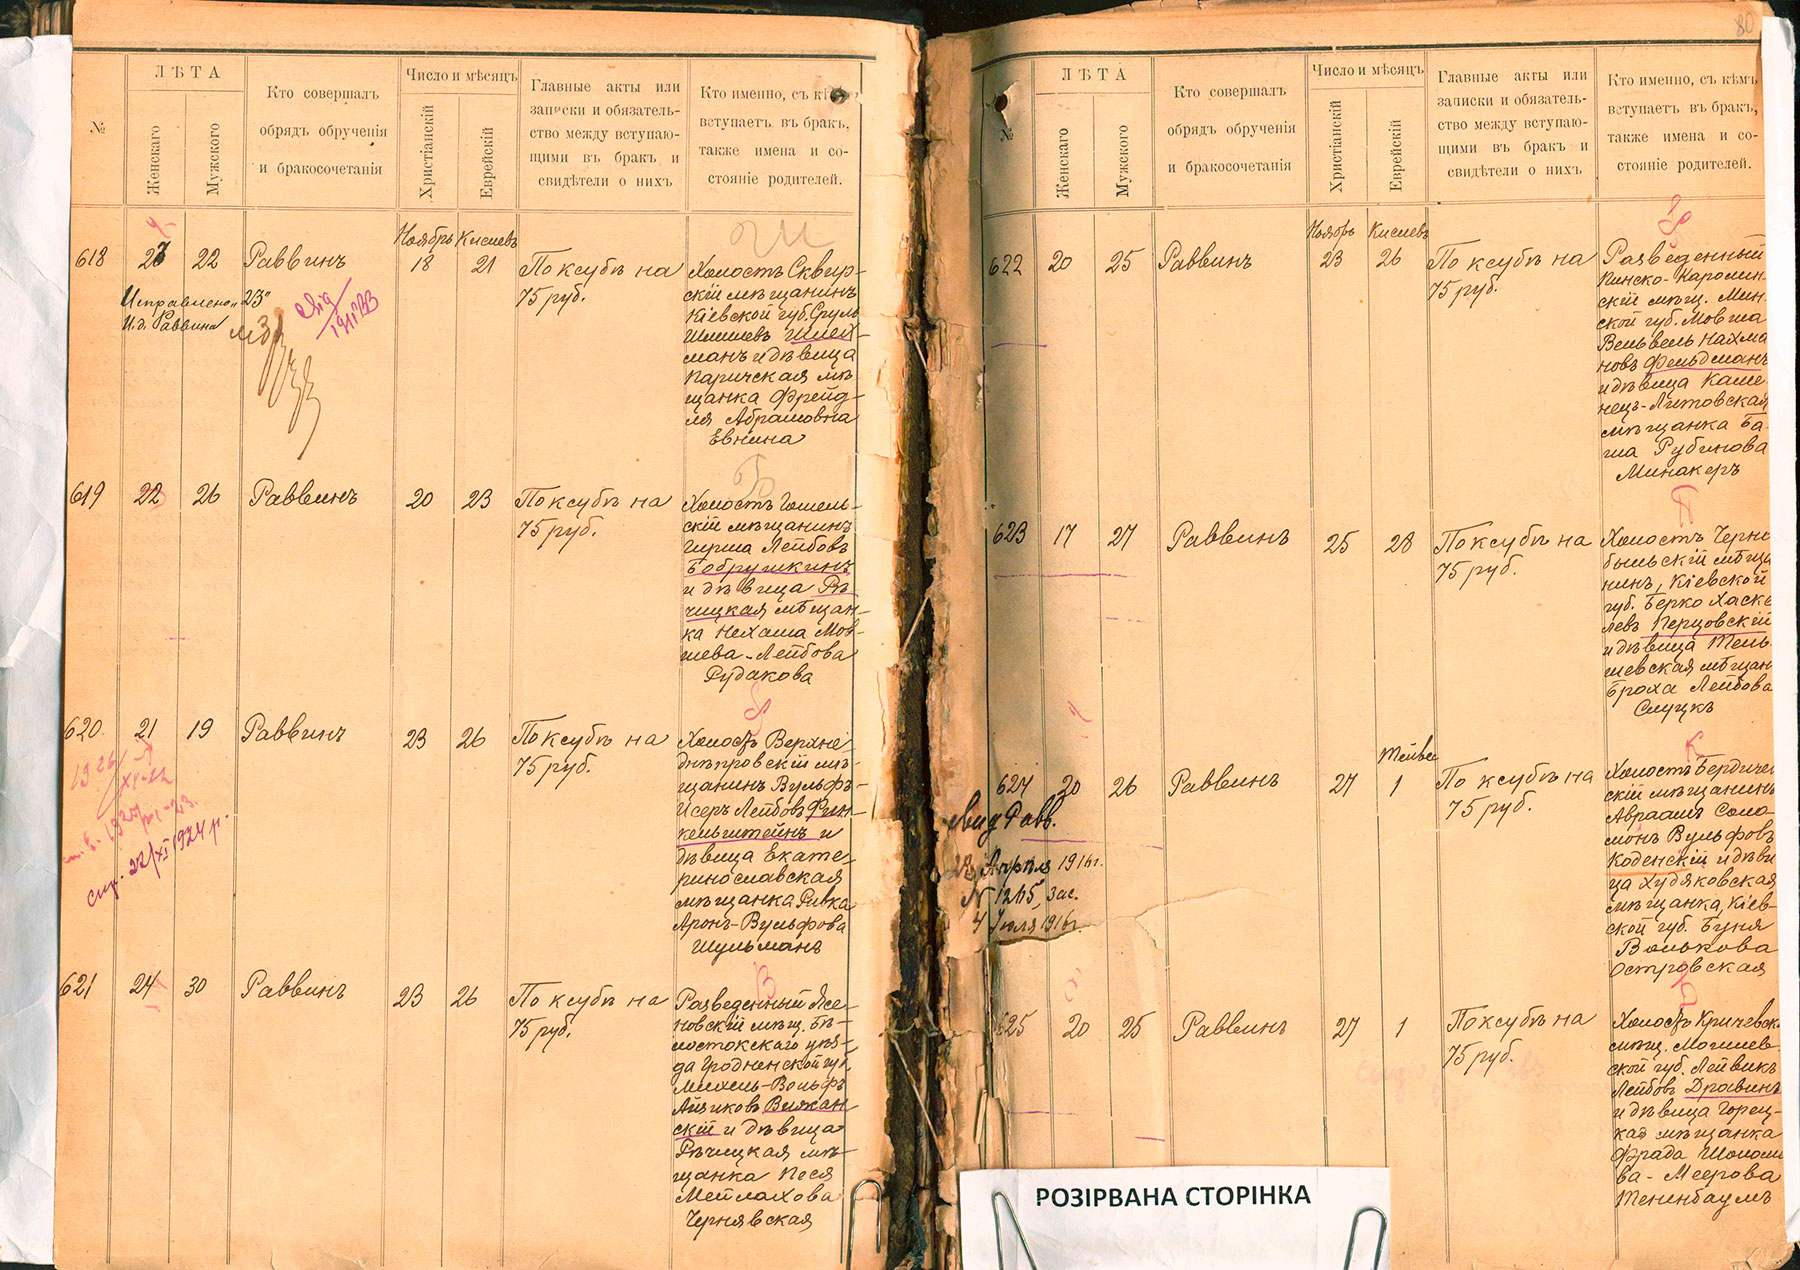 №
ЛѢТА
Женскаго
Мужского
Кто совершалъ
обрядъ обрученія
и бракосочетанія
Число и мѣсяцъ
Христіанскій
Еврейскій
Главные акты или
записки и обязатель-
ство между вступаю-
щими въ бракъ и
свидѣтели о нихъ
Кто именно, съ кѣмъ
вступаетъ въ бракъ,
также имена и со-
стояніе родителей.
Ноябрь Кислевъ
618 23 22 Раввинъ 18 21 По ксубѣ на
75 руб.
Холостъ Сквир-
скій мѣщанинъ
Кіевской губ. Сруль
Шлиомевъ Шлей-
манъ и дѣвица
Паричская мѣ-
щанка Фрейд-
ля Абрамовна
Евнина
Исправлено „23"
И.д. Раввина
619 22 26 Раввинъ 20 23 По ксубѣ на
75 руб.
Холостъ Гомель-
скій мѣщанинъ
Гирша Лейбовъ
Бобрушкинъ
и дѣвица Рѣ-
чицкая мѣщан-
ка Нехама Мов-
шева-Лейбова
Рудакова
620 21 19 Раввинъ 23 26 По ксубѣ на
75 руб.
Холостъ Верхне-
днѣпровскій мѣ-
щанинъ Вульфъ-
Исеръ Лейбовъ Фин-
кельштейнъ и
дѣвица Екате-
ринославская
мѣщанка Ривка
Аронъ-Вульфова
Шульманъ
22/XI 1924 р.
621 24 30 Раввинъ 23 26 По ксубѣ на
75 руб.
Разведенный Ясе-
новскій мѣщ. Бѣ-
лостокскаго уѣз-
да Гродненской губ.
Михель-Вольфъ
Айзиковъ Вижан-
скій и дѣвица
Рѣчицкая мѣ-
щанка Песя
Мейлахова
Чернявская
80
№
ЛѢТА
Женскаго
Мужского
Кто совершалъ
обрядъ обрученія
и бракосочетанія
Число и мѣсяцъ
Христіанскій
Еврейскій
Главные акты или
записки и обязатель-
ство между вступаю-
щими въ бракъ и
свидѣтели о нихъ
Кто именно, съ кѣмъ
вступаетъ въ бракъ,
также имена и со-
стояніе родителей.
Ноябрь Кислевъ
622 20 25 Раввинъ 23 26 По ксубѣ на
75 руб.
Разведенный
Пинско-Каролин-
скій мѣщ. Мин-
ской губ. Мовша
Вельвель Нахма-
новъ Фельдманъ
и дѣвица Каме-
нецъ-Литовская
мѣщанка Ба-
ша Рубинова
Минакеръ
623 17 27 Раввинъ 25 28 По ксубѣ на
75 руб.
Холостъ Черно
быльскій мѣща
нинъ, Кіевской
губ. Берко Хаске
левъ Перцовскій
и дѣвица Тель-
шевская мѣщан
Броха Лейбова
Слуцкъ
Тейвес
624 20 26 Раввинъ 27 1 По ксубѣ на
75 руб.
Холостъ Бердичев
скій мѣщанинъ
Авраамъ Соло
монъ Вульфовъ
Коденскій и дѣви
ца Худяковская
мѣщанка, Кіев-
ской губ. Буня
Волькова
Островская
Апрѣля 1916 г.
N 1265, Зас.
4 Іюля 1916 г.
625 20 25 Раввинъ 27 1 По ксубѣ на
75 руб.
Холостъ Кричевск
мѣщ. Могилев-
ской губ. Лейвикъ
Лейбовъ Дравинъ
и дѣвица Горец-
кая мѣщанка
Фрада Шоломо
ва-Меерова
Тененбаумъ
РОЗІРВАНА СТОРІНКА